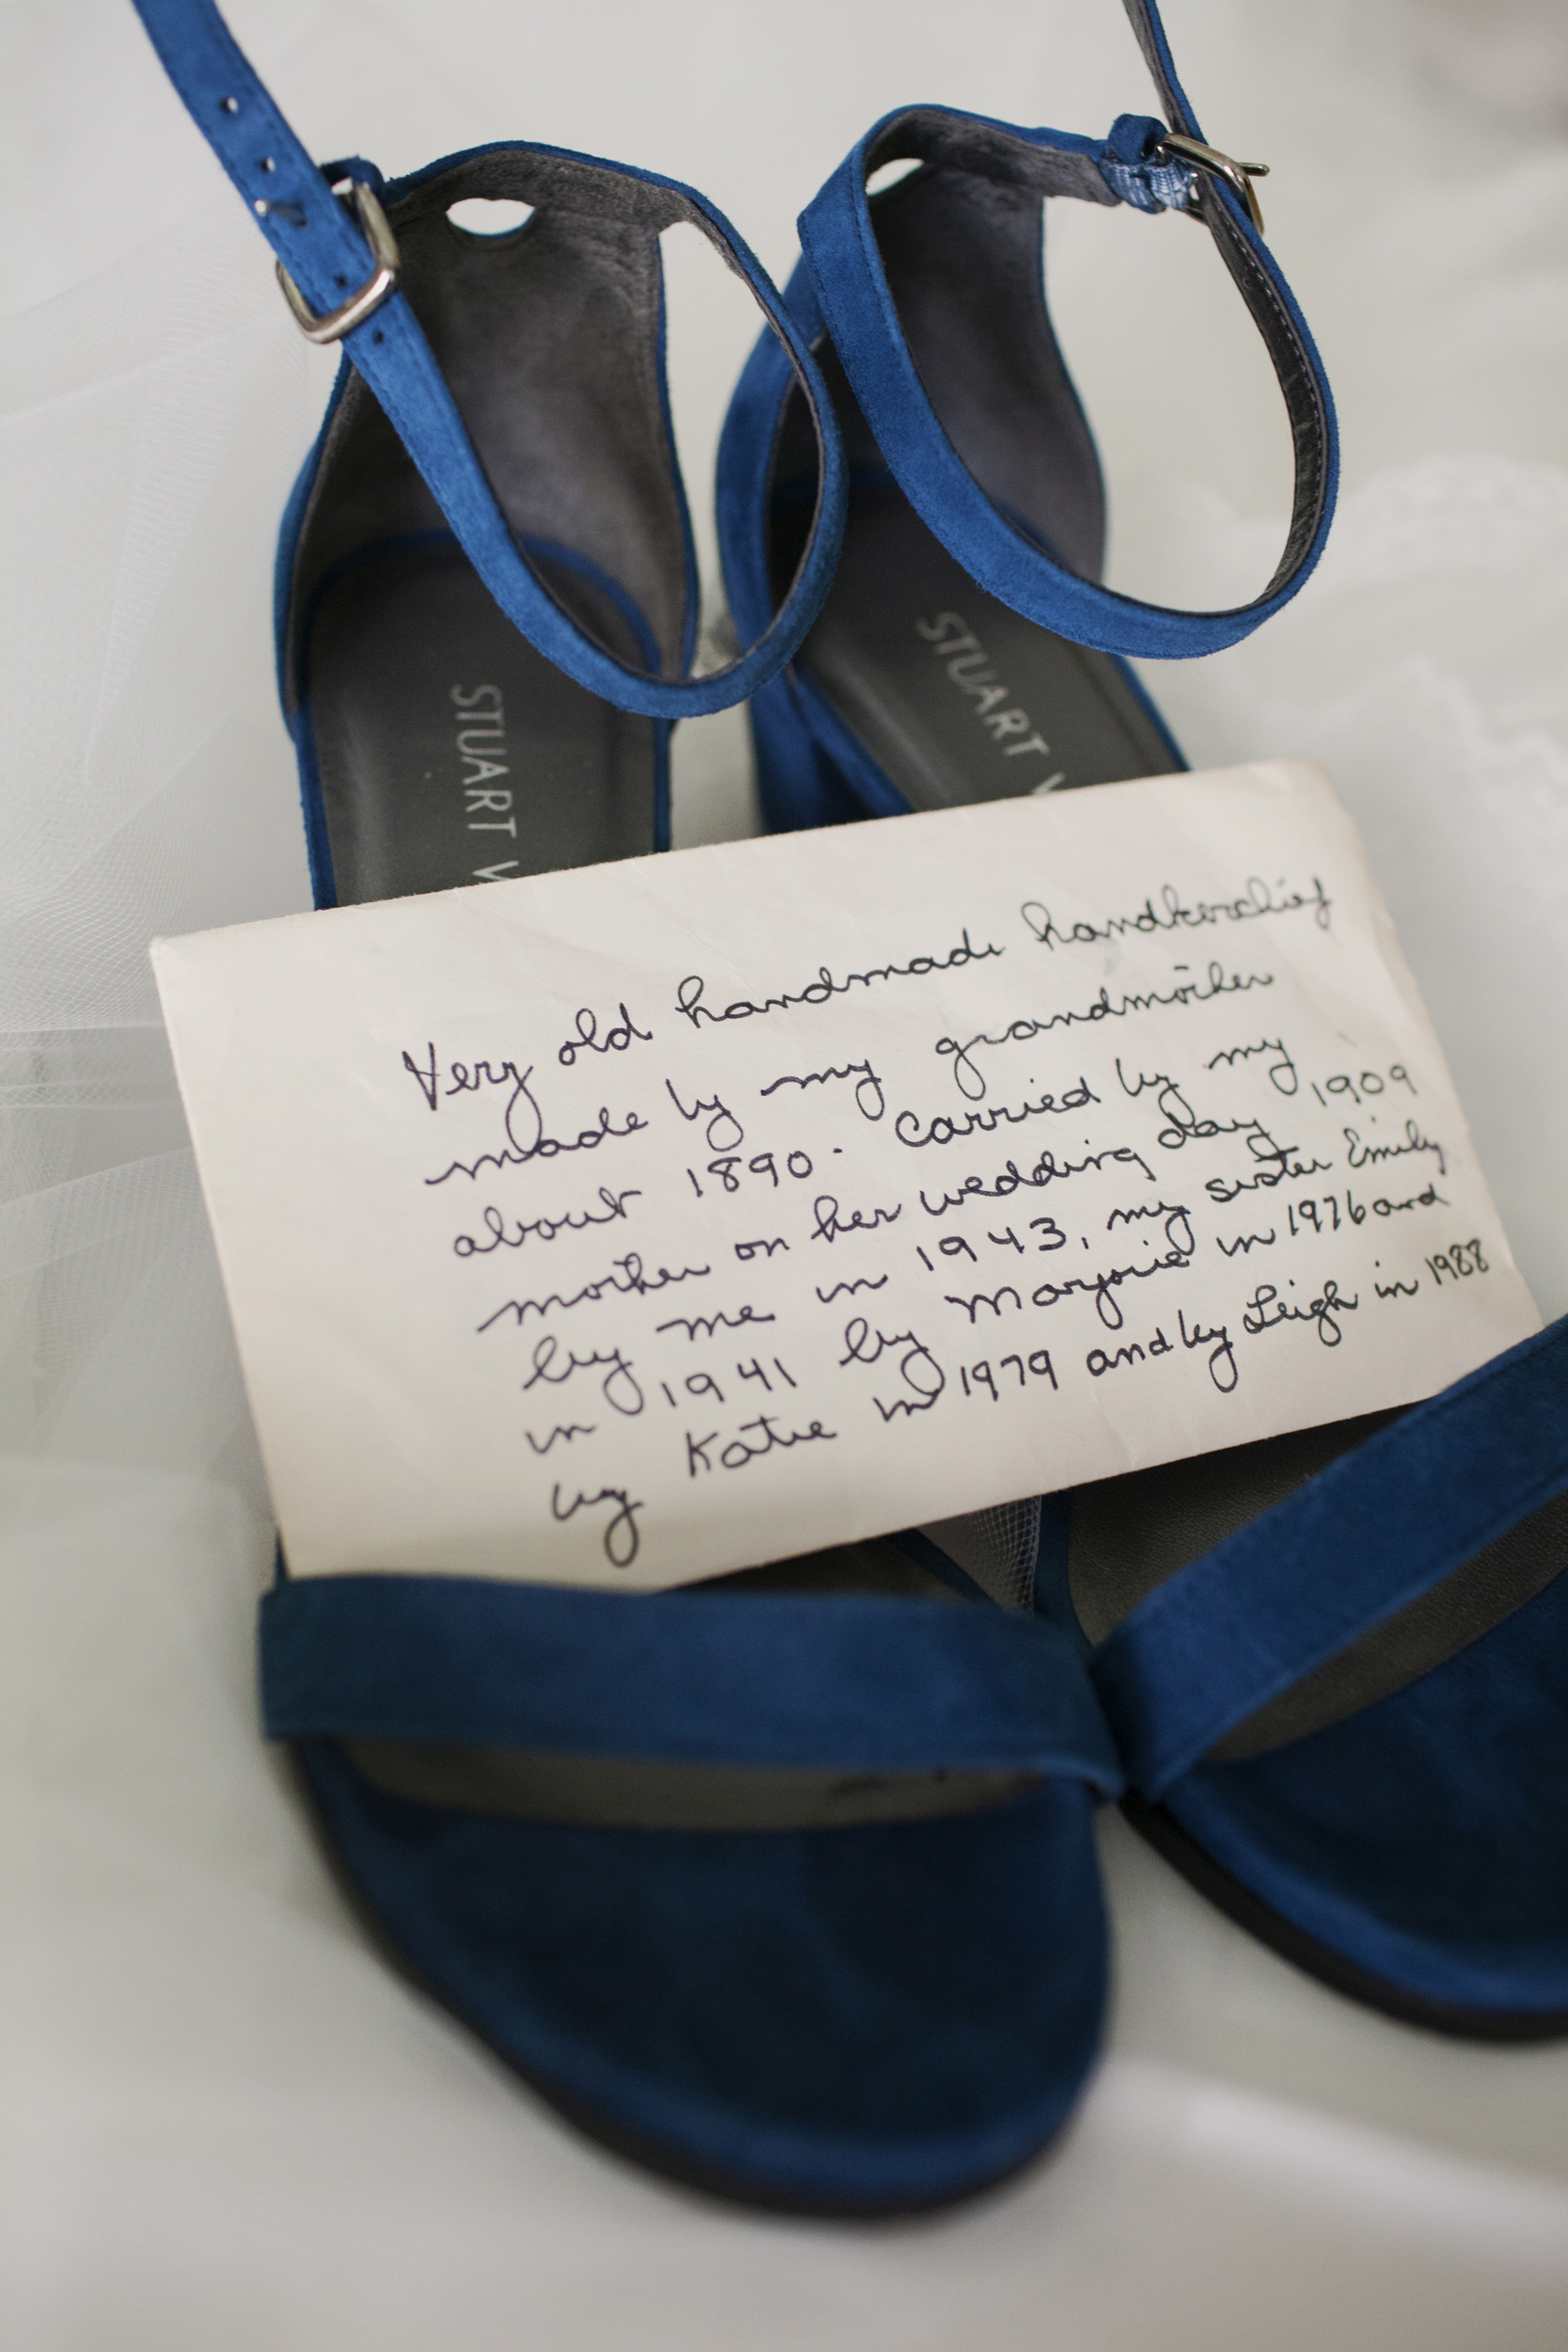 STUART W
STUART W
Very old handmade handkerchief
made by my grandmother
about 1890. Carried by my
mother on her wedding day 1909
by me in 1943, my sister Emily
in 1941 by Marjorie in 1976 and
by Katie in 1979 and by Leigh in 1988